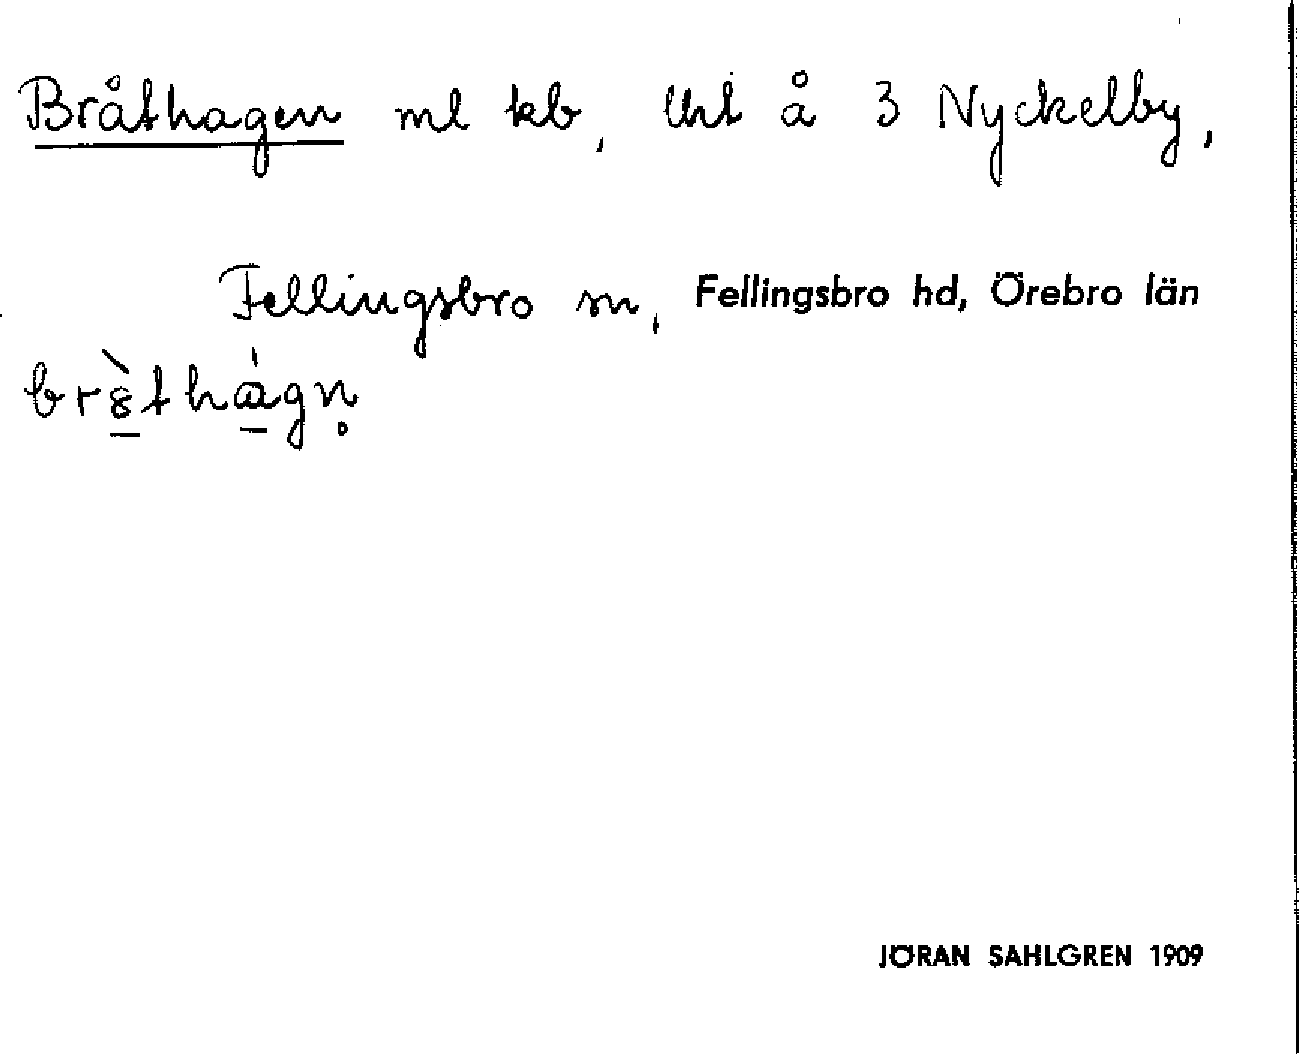 Bråthagen ml kb, Unt å 3 Nyckelby,
Fellingsbro sn, Fellingsbro hd, Örebro län
JÖRAN SAHLGREN 1909